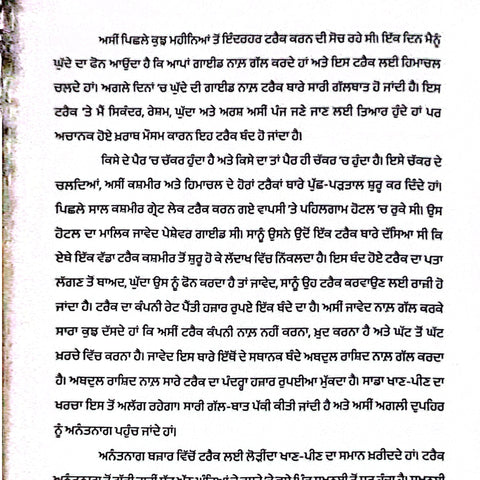 ਅਸੀਂ ਪਿਛਲੇ ਕੁਝ ਮਹੀਨਿਆਂ ਤੋਂ ਇੰਦਰਹਰ ਟਰੈਕ ਕਰਨ ਦੀ ਸੋਚ ਰਹੇ ਸੀ। ਇੱਕ ਦਿਨ ਮੈਨੂੰ
ਘੁੱਦੇ ਦਾ ਫੋਨ ਆਉਂਦਾ ਹੈ ਕਿ ਆਪਾਂ ਗਾਈਡ ਨਾਲ਼ ਗੱਲ ਕਰਦੇ ਹਾਂ ਅਤੇ ਇਸ ਟਰੈਕ ਲਈ ਹਿਮਾਚਲ
ਚਲਦੇ ਹਾਂ। ਅਗਲੇ ਦਿਨਾਂ 'ਚ ਘੁੱਦੇ ਦੀ ਗਾਈਡ ਨਾਲ਼ ਟਰੈਕ ਬਾਰੇ ਸਾਰੀ ਗੱਲਬਾਤ ਹੋ ਜਾਂਦੀ ਹੈ। ਇਸ
ਟਰੈਕ 'ਤੇ ਮੈਂ ਸਿਕੰਦਰ, ਰੇਸ਼ਮ, ਘੁੱਦਾ ਅਤੇ ਅਰਸ਼ ਅਸੀਂ ਪੰਜ ਜਣੇ ਜਾਣ ਲਈ ਤਿਆਰ ਹੁੰਦੇ ਹਾਂ ਪਰ
ਅਚਾਨਕ ਹੋਏ ਖ਼ਰਾਬ ਮੌਸਮ ਕਾਰਨ ਇਹ ਟਰੈਕ ਬੰਦ ਹੋ ਜਾਂਦਾ ਹੈ।
ਕਿਸੇ ਦੇ ਪੈਰ 'ਚ ਚੱਕਰ ਹੁੰਦਾ ਹੈ ਅਤੇ ਕਿਸੇ ਦਾ ਤਾਂ ਪੈਰ ਹੀ ਚੱਕਰ 'ਚ ਹੁੰਦਾ ਹੈ। ਇਸੇ ਚੱਕਰ ਦੇ
ਚਲਦਿਆਂ, ਅਸੀਂ ਕਸ਼ਮੀਰ ਅਤੇ ਹਿਮਾਚਲ ਦੇ ਹੋਰਾਂ ਟਰੈਕਾਂ ਬਾਰੇ ਪੁੱਛ-ਪੜਤਾਲ ਸ਼ੁਰੂ ਕਰ ਦਿੰਦੇ ਹਾਂ।
ਪਿਛਲੇ ਸਾਲ ਕਸ਼ਮੀਰ ਗ੍ਰੇਟ ਲੇਕ ਟਰੈਕ ਕਰਨ ਗਏ ਵਾਪਸੀ 'ਤੇ ਪਹਿਲਗਾਮ ਹੋਟਲ 'ਚ ਰੁਕੇ ਸੀ। ਉਸ
ਹੋਟਲ ਦਾ ਮਾਲਿਕ ਜਾਵੇਦ ਪੇਸ਼ੇਵਰ ਗਾਈਡ ਸੀ। ਸਾਨੂੰ ਉਸਨੇ ਉਦੋਂ ਇੱਕ ਟਰੈਕ ਬਾਰੇ ਦੱਸਿਆ ਸੀ ਕਿ
ਏਥੇ ਇੱਕ ਵੱਡਾ ਟਰੈਕ ਕਸ਼ਮੀਰ ਤੋਂ ਸ਼ੁਰੂ ਹੋ ਕੇ ਲੱਦਾਖ ਵਿੱਚ ਨਿਕਲਦਾ ਹੈ। ਇਸ ਬੰਦ ਹੋਏ ਟਰੈਕ ਦਾ ਪਤਾ
ਲੱਗਣ ਤੋਂ ਬਾਅਦ, ਘੁੱਦਾ ਉਸ ਨੂੰ ਫੋਨ ਕਰਦਾ ਹੈ ਤਾਂ ਜਾਵੇਦ, ਸਾਨੂੰ ਉਹ ਟਰੈਕ ਕਰਵਾਉਣ ਲਈ ਰਾਜ਼ੀ ਹੋ
ਜਾਂਦਾ ਹੈ। ਟਰੈਕ ਦਾ ਕੰਪਨੀ ਰੇਟ ਪੈਂਤੀ ਹਜ਼ਾਰ ਰੁਪਏ ਇੱਕ ਬੰਦੇ ਦਾ ਹੈ। ਅਸੀਂ ਜਾਵੇਦ ਨਾਲ਼ ਗੱਲ ਕਰਕੇ
ਸਾਰਾ ਕੁਝ ਦੱਸਦੇ ਹਾਂ ਕਿ ਅਸੀਂ ਟਰੈਕ ਕੰਪਨੀ ਨਾਲ਼ ਨਹੀਂ ਕਰਨਾ, ਖ਼ੁਦ ਕਰਨਾ ਹੈ ਅਤੇ ਘੱਟ ਤੋਂ ਘੱਟ
ਖ਼ਰਚੇ ਵਿੱਚ ਕਰਨਾ ਹੈ। ਜਾਵੇਦ ਇਸ ਬਾਰੇ ਇੱਥੋਂ ਦੇ ਸਥਾਨਕ ਬੰਦੇ ਅਬਦੁਲ ਰਾਸ਼ਿਦ ਨਾਲ਼ ਗੱਲ ਕਰਦਾ
ਹੈ। ਅਬਦੁਲ ਰਾਸ਼ਿਦ ਨਾਲ਼ ਸਾਰੇ ਟਰੈਕ ਦਾ ਪੰਦਰ੍ਹਾ ਹਜ਼ਾਰ ਰੁਪਈਆ ਮੁੱਕਦਾ ਹੈ। ਸਾਡਾ ਖਾਣ-ਪੀਣ ਦਾ
ਖਰਚਾ ਇਸ ਤੋਂ ਅਲੱਗ ਰਹੇਗਾ। ਸਾਰੀ ਗੱਲ-ਬਾਤ ਪੱਕੀ ਕੀਤੀ ਜਾਂਦੀ ਹੈ ਅਤੇ ਅਸੀਂ ਅਗਲੀ ਦੁਪਹਿਰ
ਨੂੰ ਅਨੰਤਨਾਗ ਪਹੁੰਚ ਜਾਂਦੇ ਹਾਂ।
ਅਨੰਤਨਾਗ ਬਜ਼ਾਰ ਵਿੱਚੋਂ ਟਰੈਕ ਲਈ ਲੋੜੀਂਦਾ ਖਾਣ-ਪੀਣ ਦਾ ਸਮਾਨ ਖ਼ਰੀਦਦੇ ਹਾਂ। ਟਰੈਕ